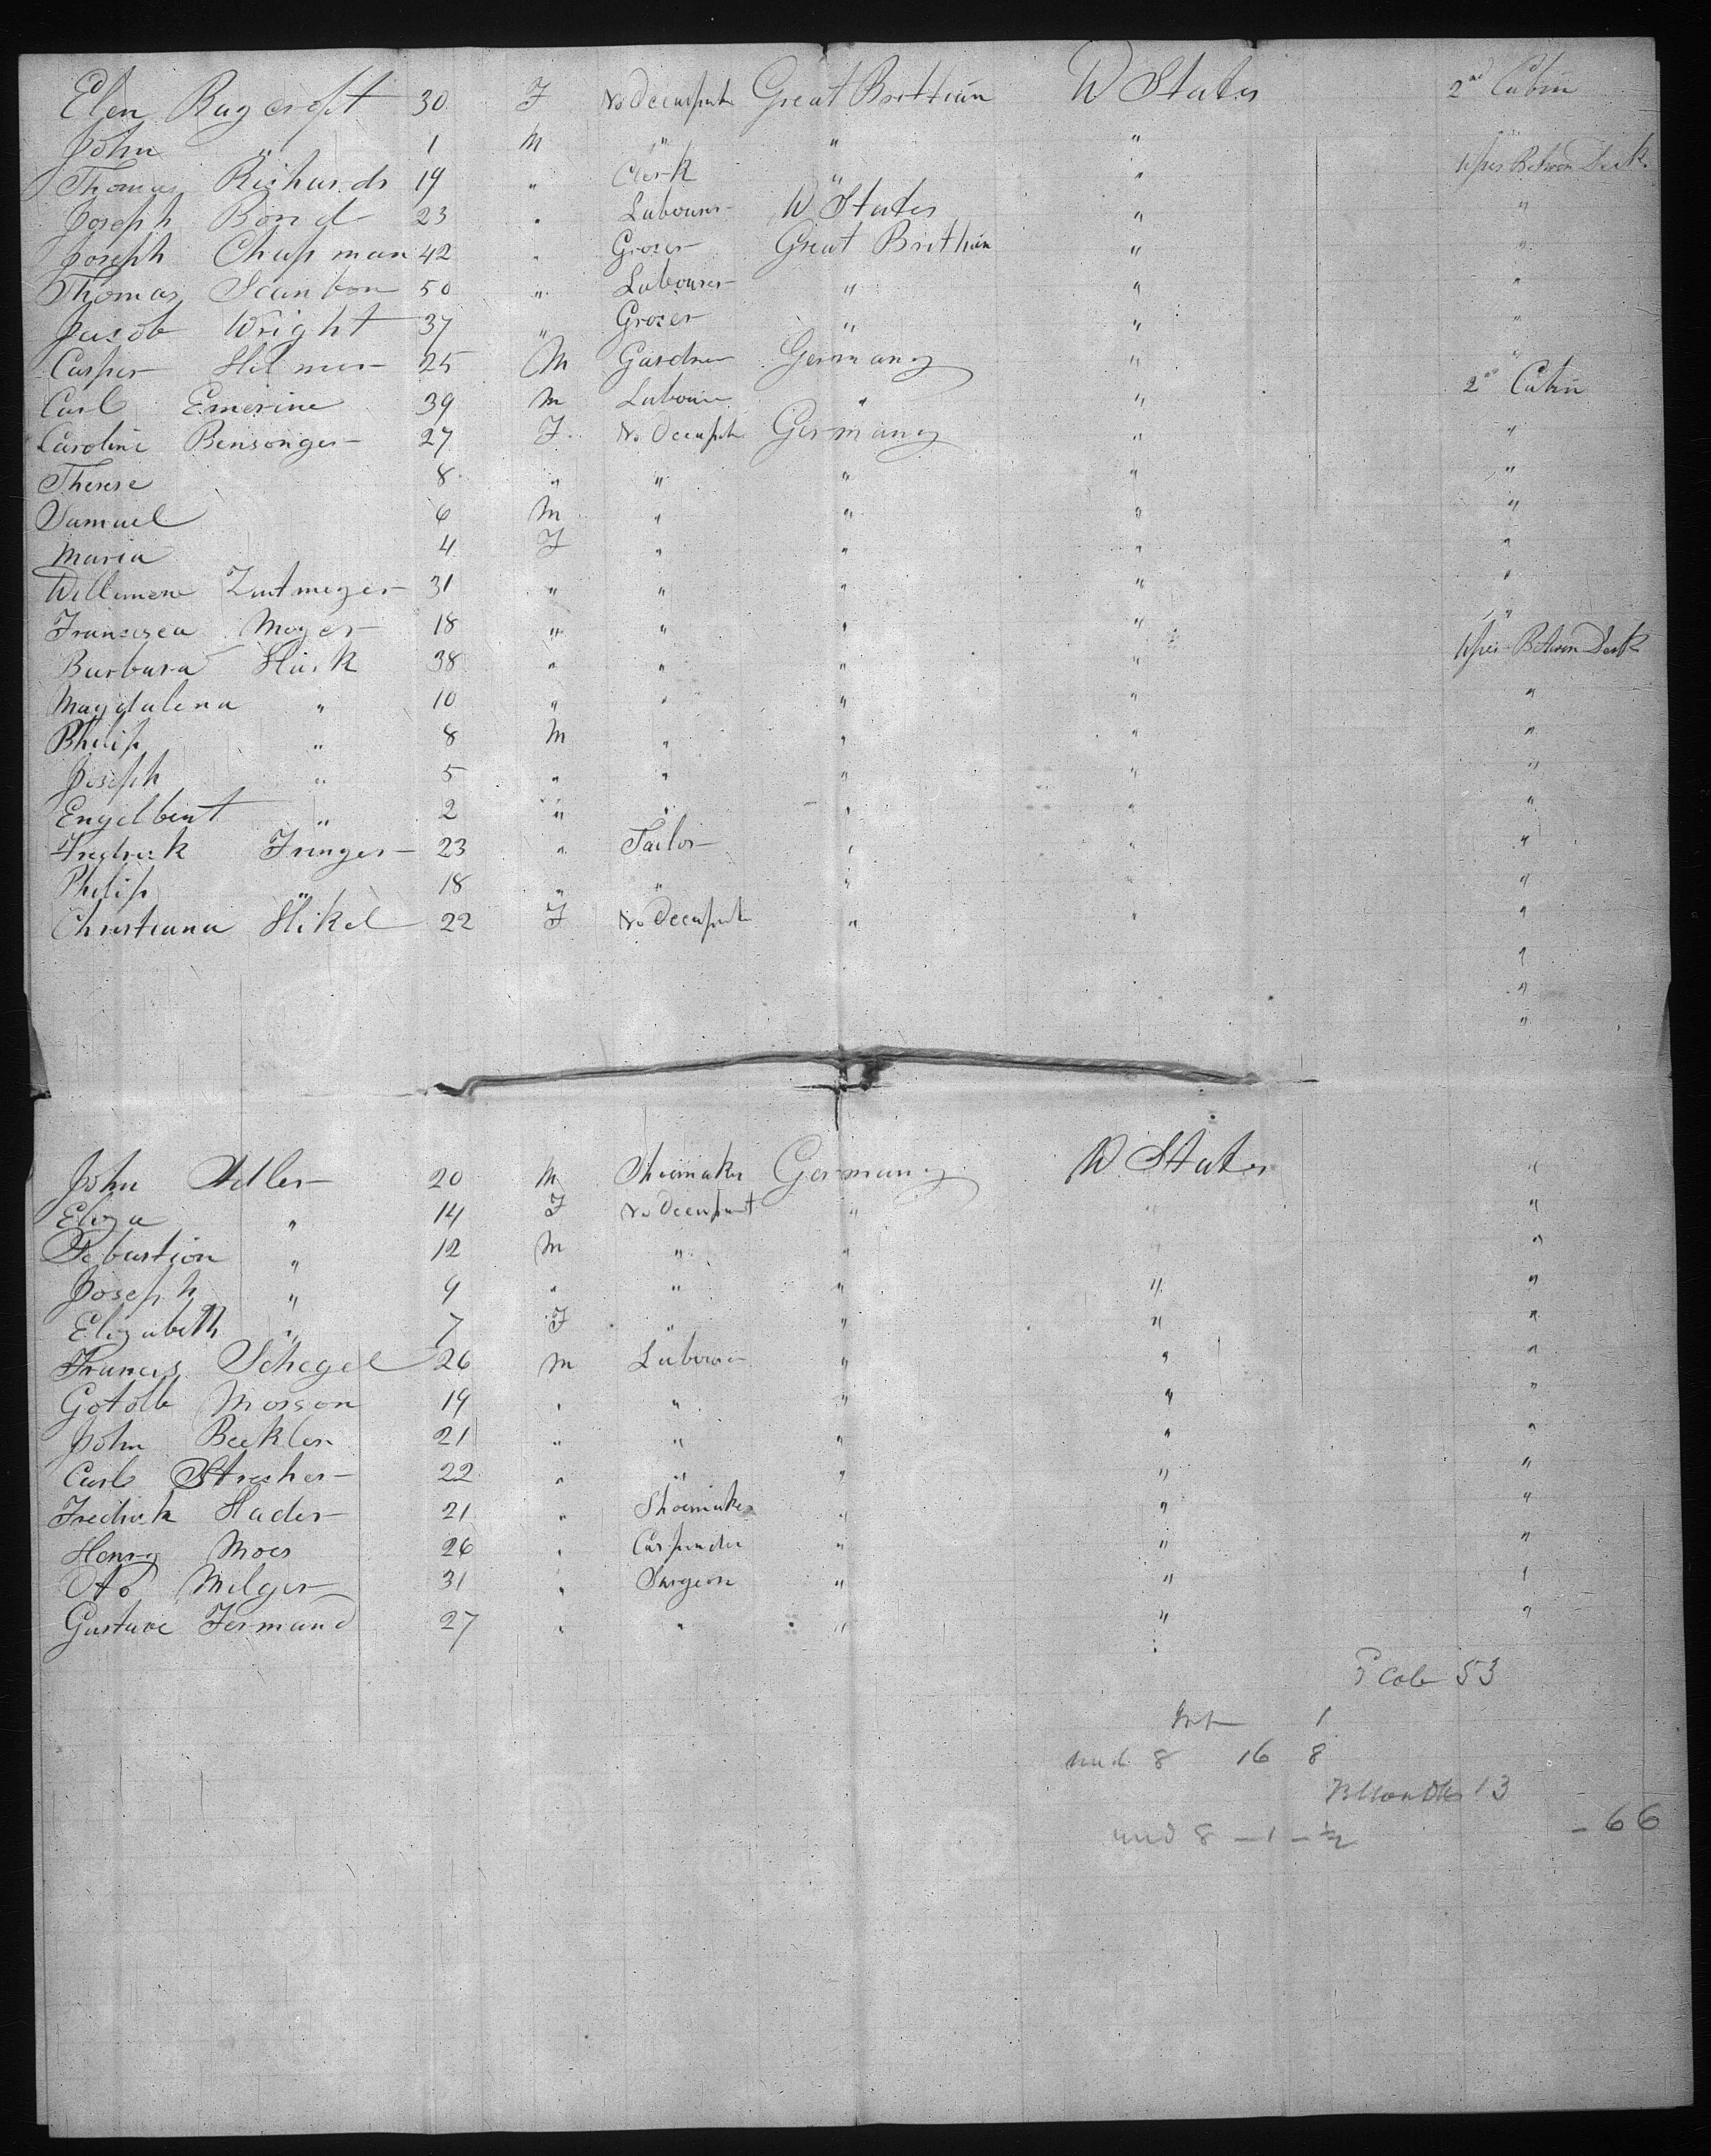 Elen Raycroft 30 F No Occupat Great Brittian U States 2nd Cabin
John " 1 M " " "
Thomas Richards 19 " Clerk " " Upper Between Deck
Joseph Bond 23 " Labourer U States " "
Joseph Chapman 42 " Grocer Great Brittian " "
Thomas Scanbon 50 " Labourer " " "
Jacob Wright 37 " Grocer " " "
Casper Hilmer 25 M Gardner Germany " "
Carl Emerine 39 M Labourer " " 2nd Cabin
Caroline Bensonger 27 F No Occupat Germany " "
Therese 8 " " " " "
Samuel 6 M " " " "
Maria 4 F " " " "
Willimene Zintmeyer 31 " " " " "
Francisca Moyer 18 " " " " "
Barbara Hück 38 " " " " Upper Between Deck
Magdalena " 10 " " " " "
Philip " 8 M " " " "
Joseph " 5 " " " " "
Engelbert " 2 " " " " "
Fredrick Fringer 23 " Tailor " " "
Philip " 18 " " " " "
Christiana Hikel 22 F No Occupat " " "
"
"
"
John Adler 20 M Shoemaker Germany U States "
Eliza " 14 F No Occupant " " "
Sebastion " 12 M " " " "
Joseph " 9 " " " " "
Elizabeth " 7 F " " " "
Francis Schegel 26 M Labourer " " "
Gotolb Morson 19 " " " " "
John Beekler 21 " " " " "
Carl Strecher 22 " " " " "
Fredrick Hader 21 " Shoemaker " " "
Henry Moer 26 " Carpender " " "
Oto Melger 31 " Surgeon " " "
Gustave Fermand 27 " " " " "
Cab 53
Inf 1
und 8 16 8
13
und 8 - 1 - ½ - 66